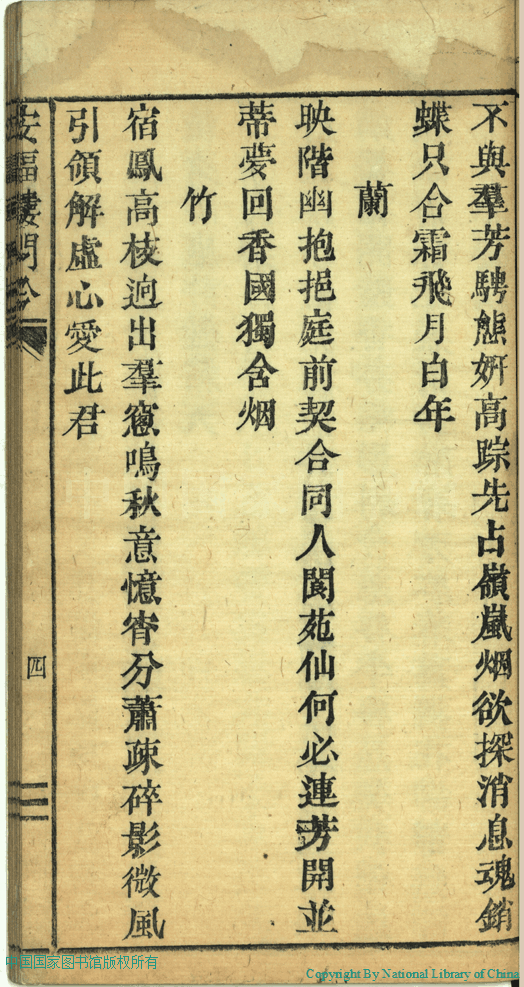 不與羣芳騁態妍高踪先占嶺嵐烟欲探消息魂銷
蝶只合霜飛月白年
蘭
映階幽抱挹庭前契合同人閬苑仙何必連芳開並
蒂夢回香國獨含烟
竹
宿鳳高枝逈出羣窓鳴秋意憶宵分蕭疎碎影微風
引領解虛心愛此君
安福樓閒吟
四
中国国家图书馆版权所有
Copyright By National Library of China